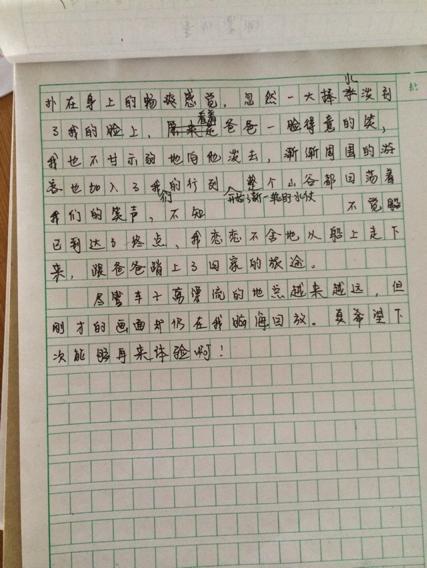 扑在身上的畅爽感觉，忽然一大捧水泼到
了我的脸上，看着爸爸一脸得意的笑，
我也不甘示弱地向他泼去，渐渐周围的游
客也加入了我们的行列，开始了新一轮的水仗
整个山谷都回荡着
我们的笑声，不知不觉船
已到达了终点，我恋恋不舍地从船上走下
来，跟爸爸踏上了回家的旅途。
尽管车子离漂流的地点越来越远，但
刚才的画面却仍在我脑海回放。真希望下
次能够再来体验啊！